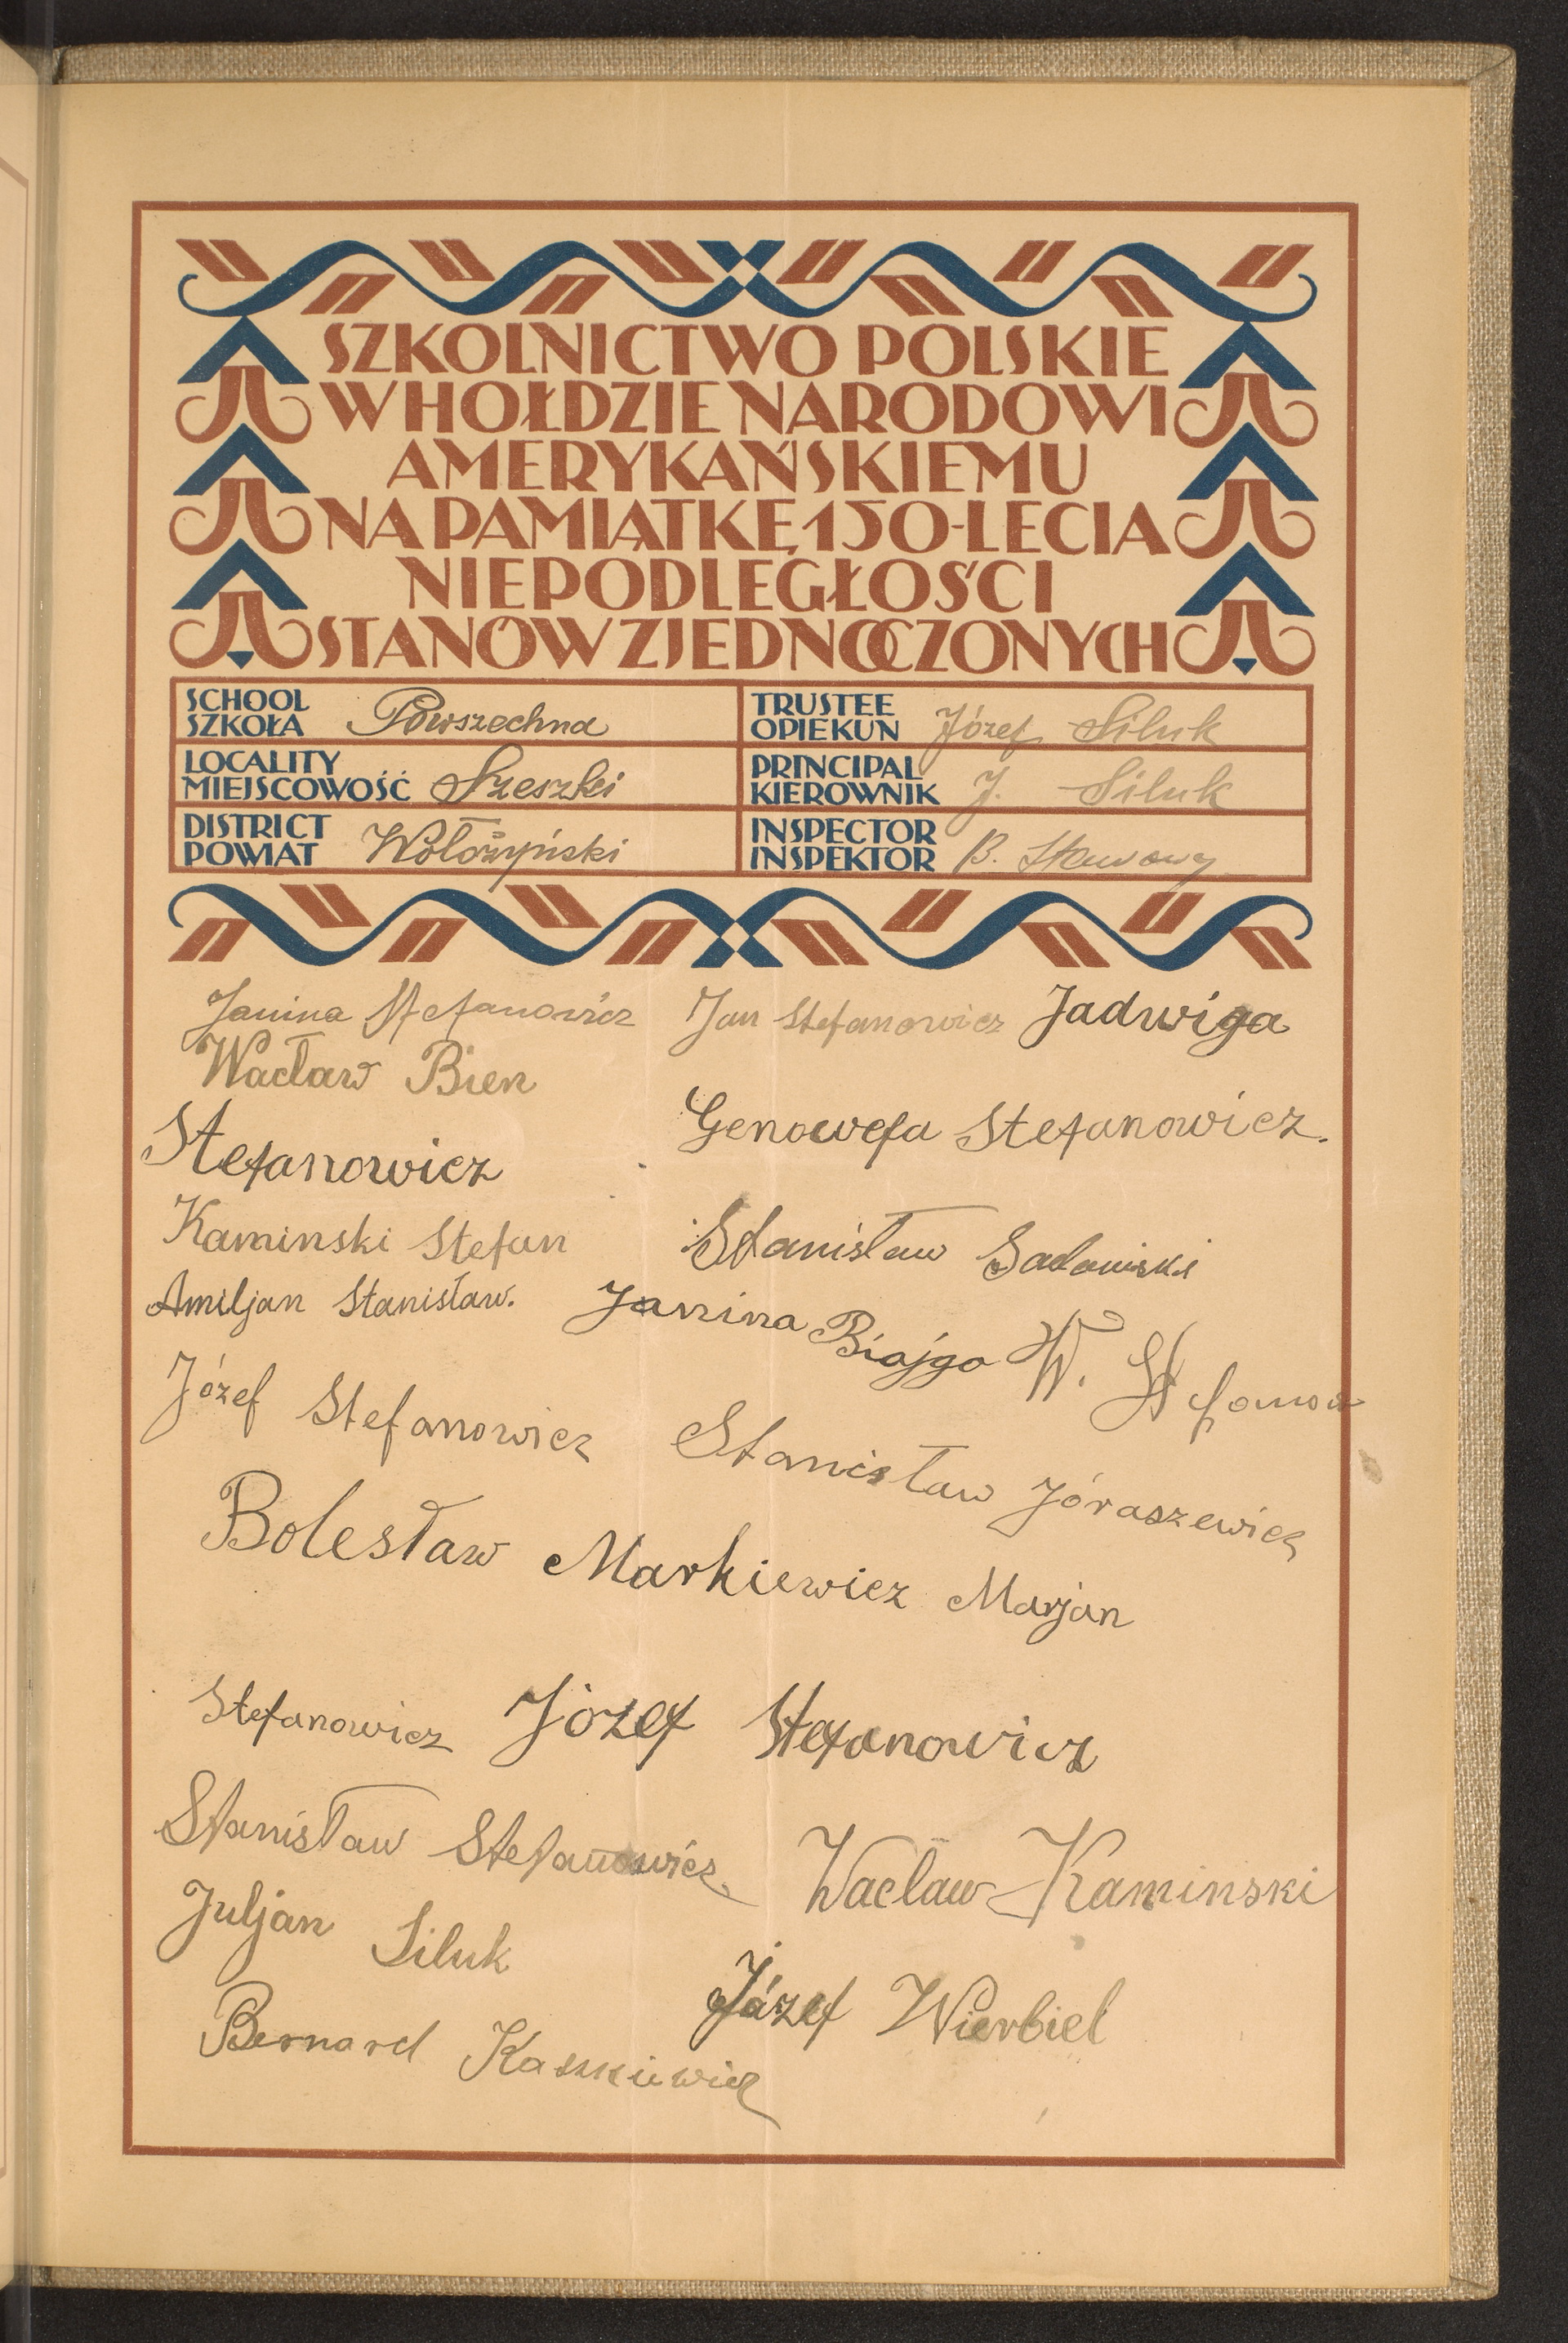 SZKOLNICTWO POLSKIE
W HOŁDZIE NARODOWI
AMERYKAŃSKIEMU
NA PAMIĄTKĘ 150-LECIA
NIEPODLEGŁOŚCI
STANÓW ZJEDNOCZONYCH
SCHOOL
SZKOŁA Powszechna
TRUSTEE
OPIEKUN Józef Siluk
LOCALITY
MIEJSCOWOŚĆ Szeszki
PRINCIPAL
KIEROWNIK J. Siluk
DISTRICT
POWIAT Wołożyński
INSPECTOR
INSPEKTOR B.
Janina Stefanowicz Jan Stefanowicz Jadwiga
Wacław Bien
Stefanowicz Genowefa Stefanowicz.
Kaminski Stefan Stanisław Sadowski
Amiljan Stanisław. Janina Biajgo W.
Józef Stefanowicz Stanisław Jóraszewicz
Bolesław Markiewicz Marjan
Stefanowicz Józef Stefanowicz
Stanisław Stefanowicz Wacław Kaminski
Juljan Siluk
Józef Wierbiel
Bernard Kaszkiewicz